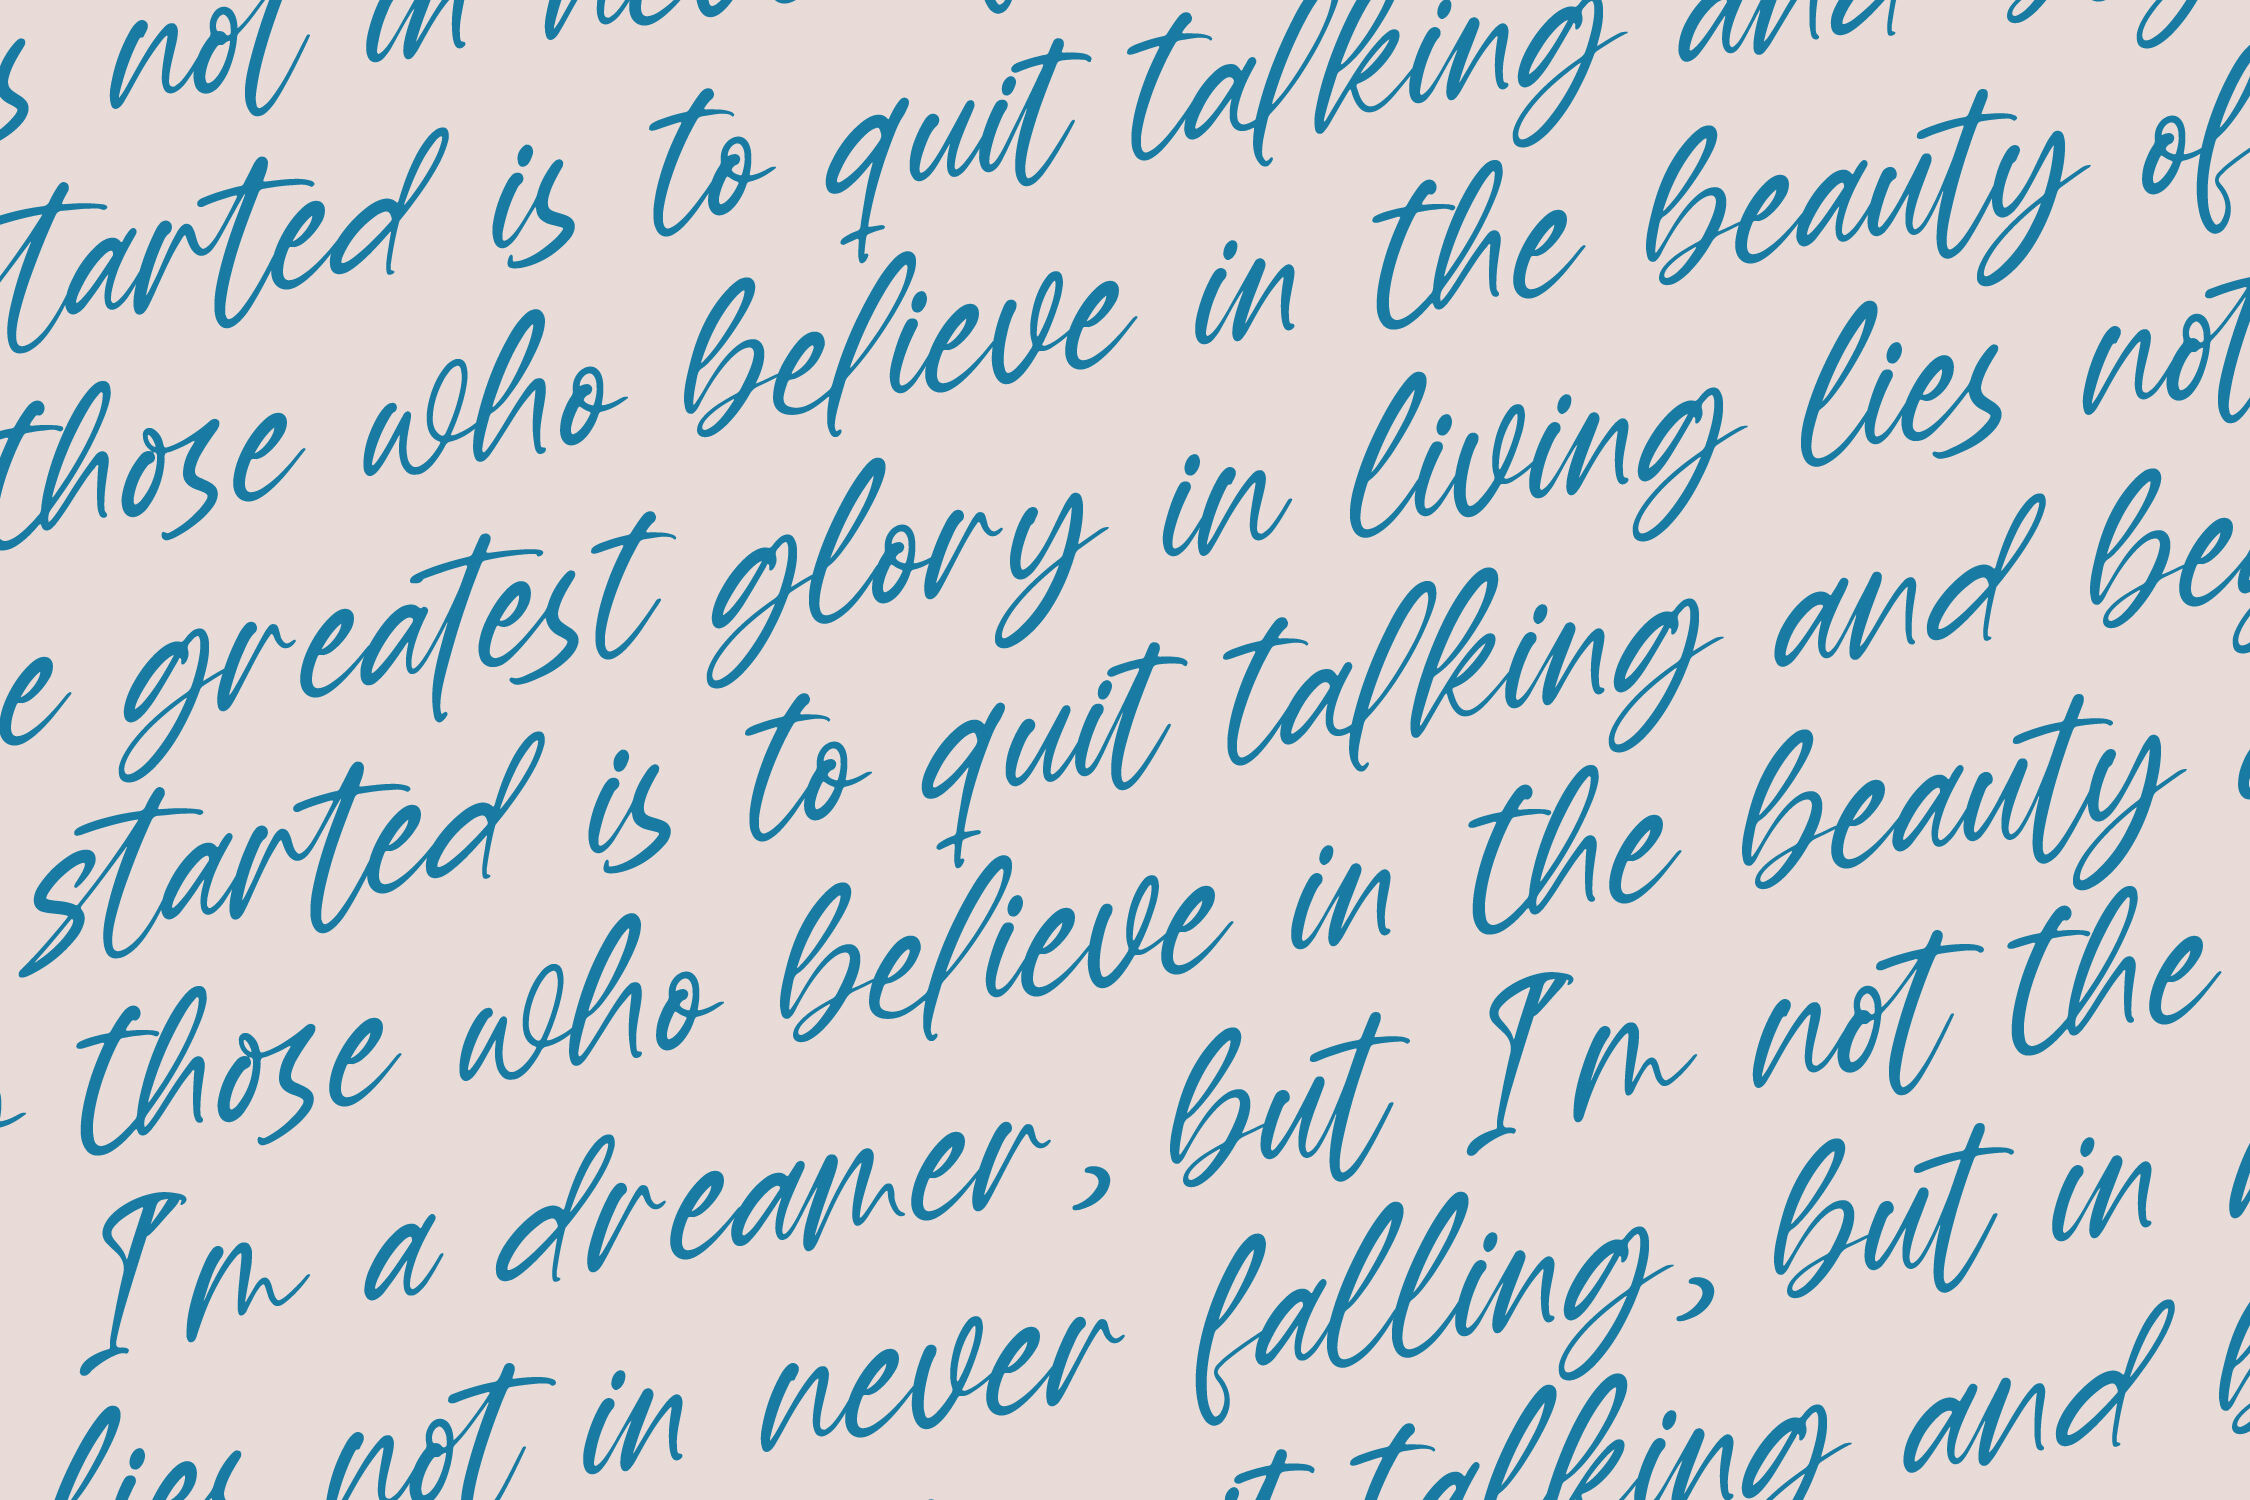 not in
started is to quit talking and
those who believe in the beauty of
greatest glory in living lies not
started is to quit talking and
those who believe in the beauty
I'm a dreamer, but I'm not the
lies not in never falling, but in
talking and